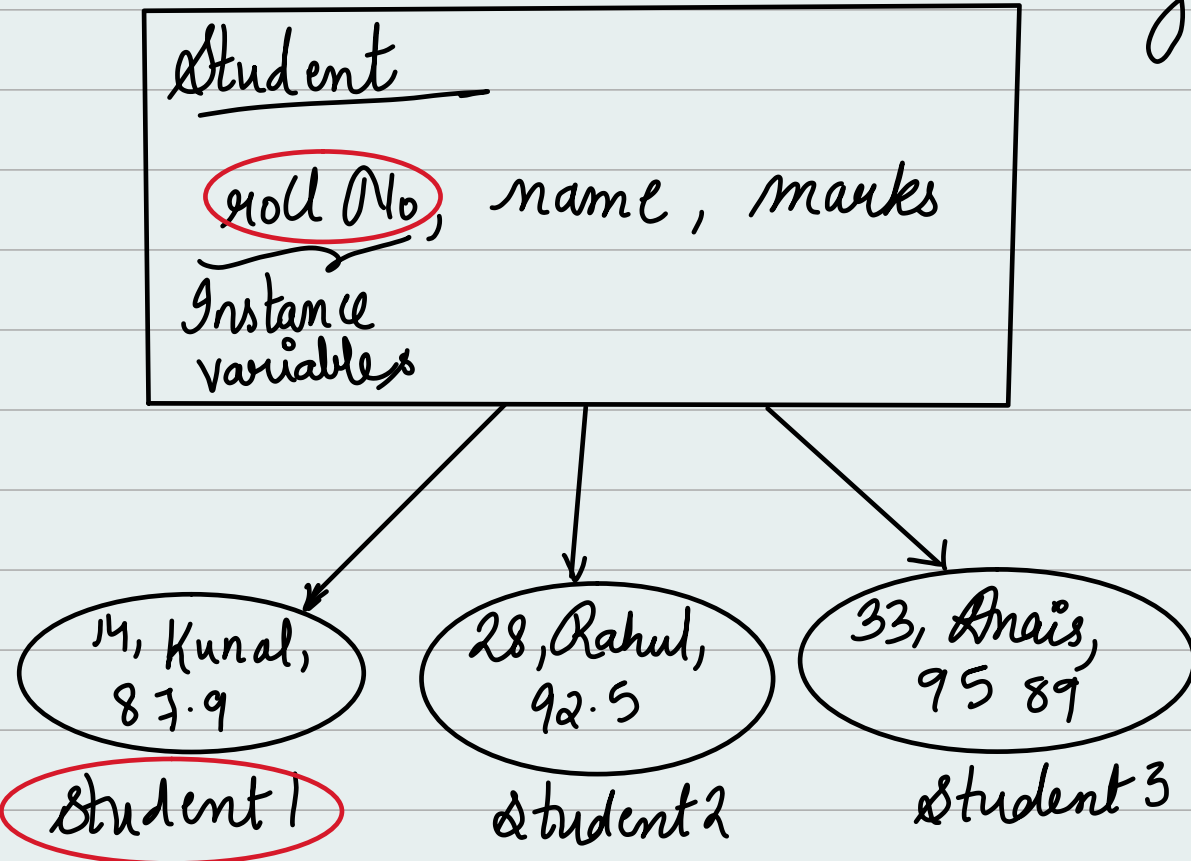 Student
roll No, name, marks
Instance
variables
14, Kunal,
87.9
28, Rahul,
92.5
33, Anais,
95 89
Student 1
Student 2
Student 3